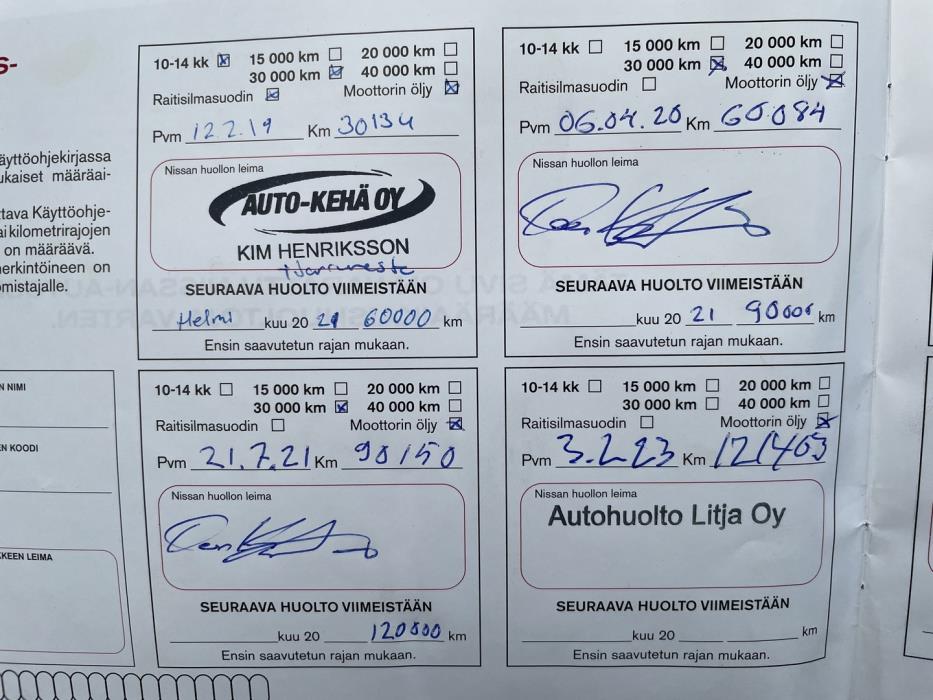 S-
äyttöohjekirjassa
ukaiset määräai-
ttava Käyttöohje-
ai kilometrirajojen
on määräävä.
nerkintöineen on
omistajalle.
10-14 kk 15 000 km 20 000 km
30 000 km 40 000 km
Raitisilmasuodin Moottorin öljy
Pvm 12.2.19 Km 30134
Nissan huollon leima
AUTO-KEHÄ OY
KIM HENRIKSSON
SEURAAVA HUOLTO VIIMEISTÄÄN
Helmi kuu 20 60000 km
Ensin saavutetun rajan mukaan.
10-14 kk 15 000 km 20 000 km
30 000 km 40 000 km
Raitisilmasuodin Moottorin öljy
Pvm 06.04.20 Km 60084
Nissan huollon leima
SEURAAVA HUOLTO VIIMEISTÄÄN
kuu 20 21 90000 km
Ensin saavutetun rajan mukaan.
N NIMI
EN KOODI
KKEEN LEIMA
10-14 kk 15 000 km 20 000 km
30 000 km 40 000 km
Raitisilmasuodin Moottorin öljy
Pvm 21.7.21 Km 90150
Nissan huollon leima
SEURAAVA HUOLTO VIIMEISTÄÄN
kuu 20 120000 km
Ensin saavutetun rajan mukaan.
10-14 kk 15 000 km 20 000 km
30 000 km 40 000 km
Raitisilmasuodin Moottorin öljy
Pvm 3.2.23 Km 121463
Nissan huollon leima
Autohuolto Litja Oy
SEURAAVA HUOLTO VIIMEISTÄÄN
kuu 20 km
Ensin saavutetun rajan mukaan.